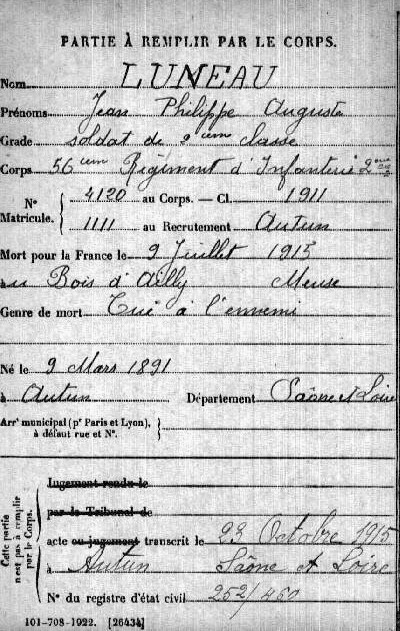 PARTIE À REMPLIR PAR LE CORPS.
Nom LUNEAU
Prénoms Jean Philippe Auguste
Grade soldat de 2ième classe
Corps 56ième Régiment d'Infanterie
N° Matricule. { 4120 au Corps. — Cl. 1911
1111 au Recrutement Autun
Mort pour la France le 9 Juillet 1915
au Bois d'Ailly Meuse
Genre de mort Tué à l'ennemi
Né le 9 Mars 1891
à Autun Département Saône et Loire
Arr^t municipal (p^r Paris et Lyon), à défaut rue et N°. }
Cette partie n'est pas à remplir par le Corps. {
Jugement rendu le
par le Tribunal de
acte ou jugement transcrit le 23 Octobre 1915
à Autun Saône et Loire
N° du registre d'état civil 252/460
101-708-1922. [26434]